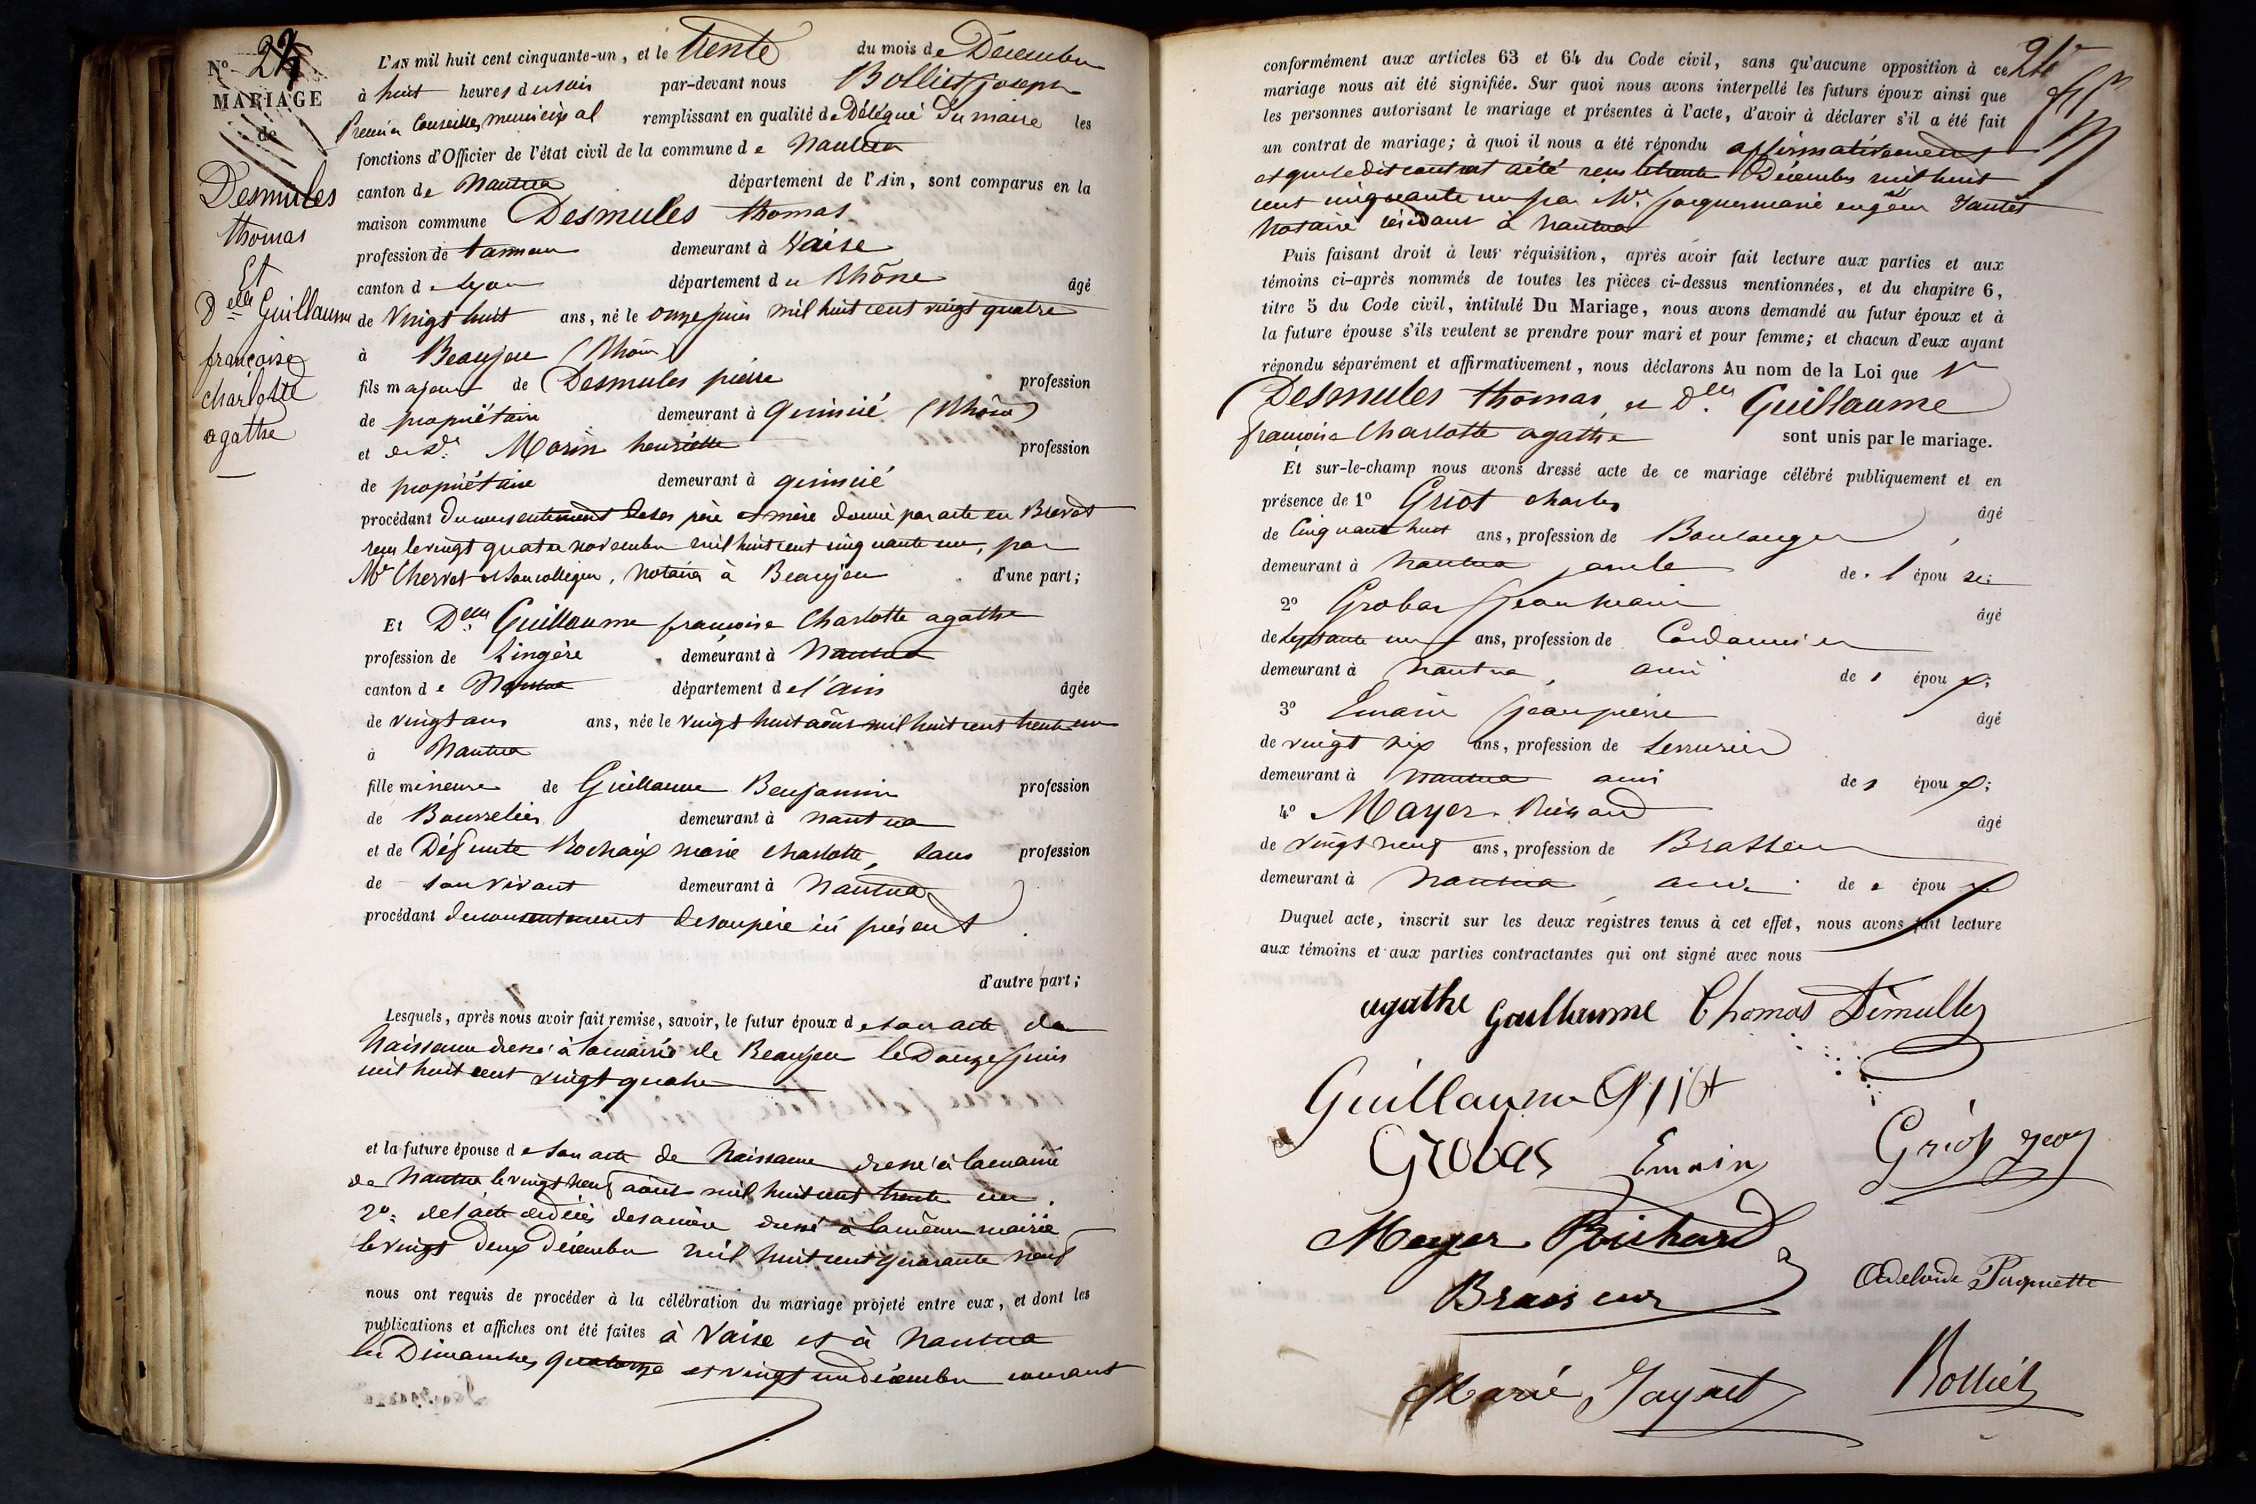 N° 24
MARIAGE
de
Desmules
thomas
Et
Delle Guillaume
françoise
charlotte
agathe
L'AN mil huit cent cinquante-un, et le trente du mois de Décembre
à huit heures du soir par-devant nous Bolliet joseph
Premier Conseiller municipal remplissant en qualité de Délégué du maire les
fonctions d'Officier de l'état civil de la commune de Nantua
canton de Nantua département de l'Ain, sont comparus en la
maison commune Desmules thomas
profession de tanneur demeurant à Vaise
canton de Lyon département du Rhône âgé
de Vingt huit ans, né le onze juin mil huit cent vingt quatre
à Beaujeu (Rhône)
fils majeur de Desmules pierre profession
de propriétaire demeurant à Quincié (Rhône)
et de De. Morin henriette profession
de propriétaire demeurant à quincié
procédant du consentement de ses père et mère donné par acte en Brevet
reçu le vingt quatre novembre mil huit cent cinquante un, par
Me Chervet et son collègue, Notaires à Beaujeu d'une part;
Et Delle Guillaume françoise Charlotte agathe
profession de Lingère demeurant à Nantua
canton de Nantua département de l'ain âgée
de vingt ans ans, née le vingt huit août mil huit cent trente un
à Nantua
fille mineure de Guillaume Benjamin profession
de Bourrelier demeurant à Nantua
et de Défunte Rochaix marie charlotte, sans profession
de son vivant demeurant à Nantua
procédant du consentement de son père ici présent
d'autre part;
Lesquels, après nous avoir fait remise, savoir, le futur époux de son acte de
Naissance dressé à la mairie de Beaujeu le Douze juin
mil huit cent vingt quatre
et la future épouse de son acte de Naissance dressé à la mairie
de Nantua le vingt neuf août mil huit cent trente un.
2°: de l'acte de décès de sa mère dressé à la même mairie
le vingt deux décembre mil huit cent quarante neuf
nous ont requis de procéder à la célébration du mariage projeté entre eux, et dont les
publications et affiches ont été faites à Vaise et à Nantua
les Dimanches quatorze et vingt un décembre courant
24e
conformément aux articles 63 et 64 du Code civil, sans qu'aucune opposition à ce
mariage nous ait été signifiée. Sur quoi nous avons interpellé les futurs époux ainsi que
les personnes autorisant le mariage et présentes à l'acte, d'avoir à déclarer s'il a été fait
un contrat de mariage; à quoi il nous a été répondu affirmativement
et que ledit contrat a été reçu le trente Décembre mil huit
cent cinquante un par Me. jacques marie eugène
Notaire résidant à Nantua
Puis faisant droit à leur réquisition, après avoir fait lecture aux parties et aux
témoins ci-après nommés de toutes les pièces ci-dessus mentionnées, et du chapitre 6,
titre 5 du Code civil, intitulé Du Mariage, nous avons demandé au futur époux et à
la future épouse s'ils veulent se prendre pour mari et pour femme; et chacun d'eux ayant
répondu séparément et affirmativement, nous déclarons Au nom de la Loi que Sr
Desmules thomas, et Delle Guillaume
françoise Charlotte agathe sont unis par le mariage.
Et sur-le-champ nous avons dressé acte de ce mariage célébré publiquement et en
présence de 1° Griot charles âgé
de Cinquante huit ans, profession de Boulanger
demeurant à Nantua oncle de l'épouse;
2° Grobas jean marie âgé
de septante un ans, profession de Cordonnier
demeurant à Nantua, ami de s époux;
3° Emain jean pierre âgé
de vingt six ans, profession de serrurier
demeurant à Nantua ami de s époux;
4° Mayer Richard âgé
de vingt neuf ans, profession de Brasseur
demeurant à Nantua ami de s époux
Duquel acte, inscrit sur les deux régistres tenus à cet effet, nous avons fait lecture
aux témoins et aux parties contractantes qui ont signé avec nous
agathe Guillaume Thomas Démulle
Guillaume Griot
Grobas Emain Griot jeny
Meyer Richard
Braiseur Adelaide Paquette
Marie Jaquet Bolliet